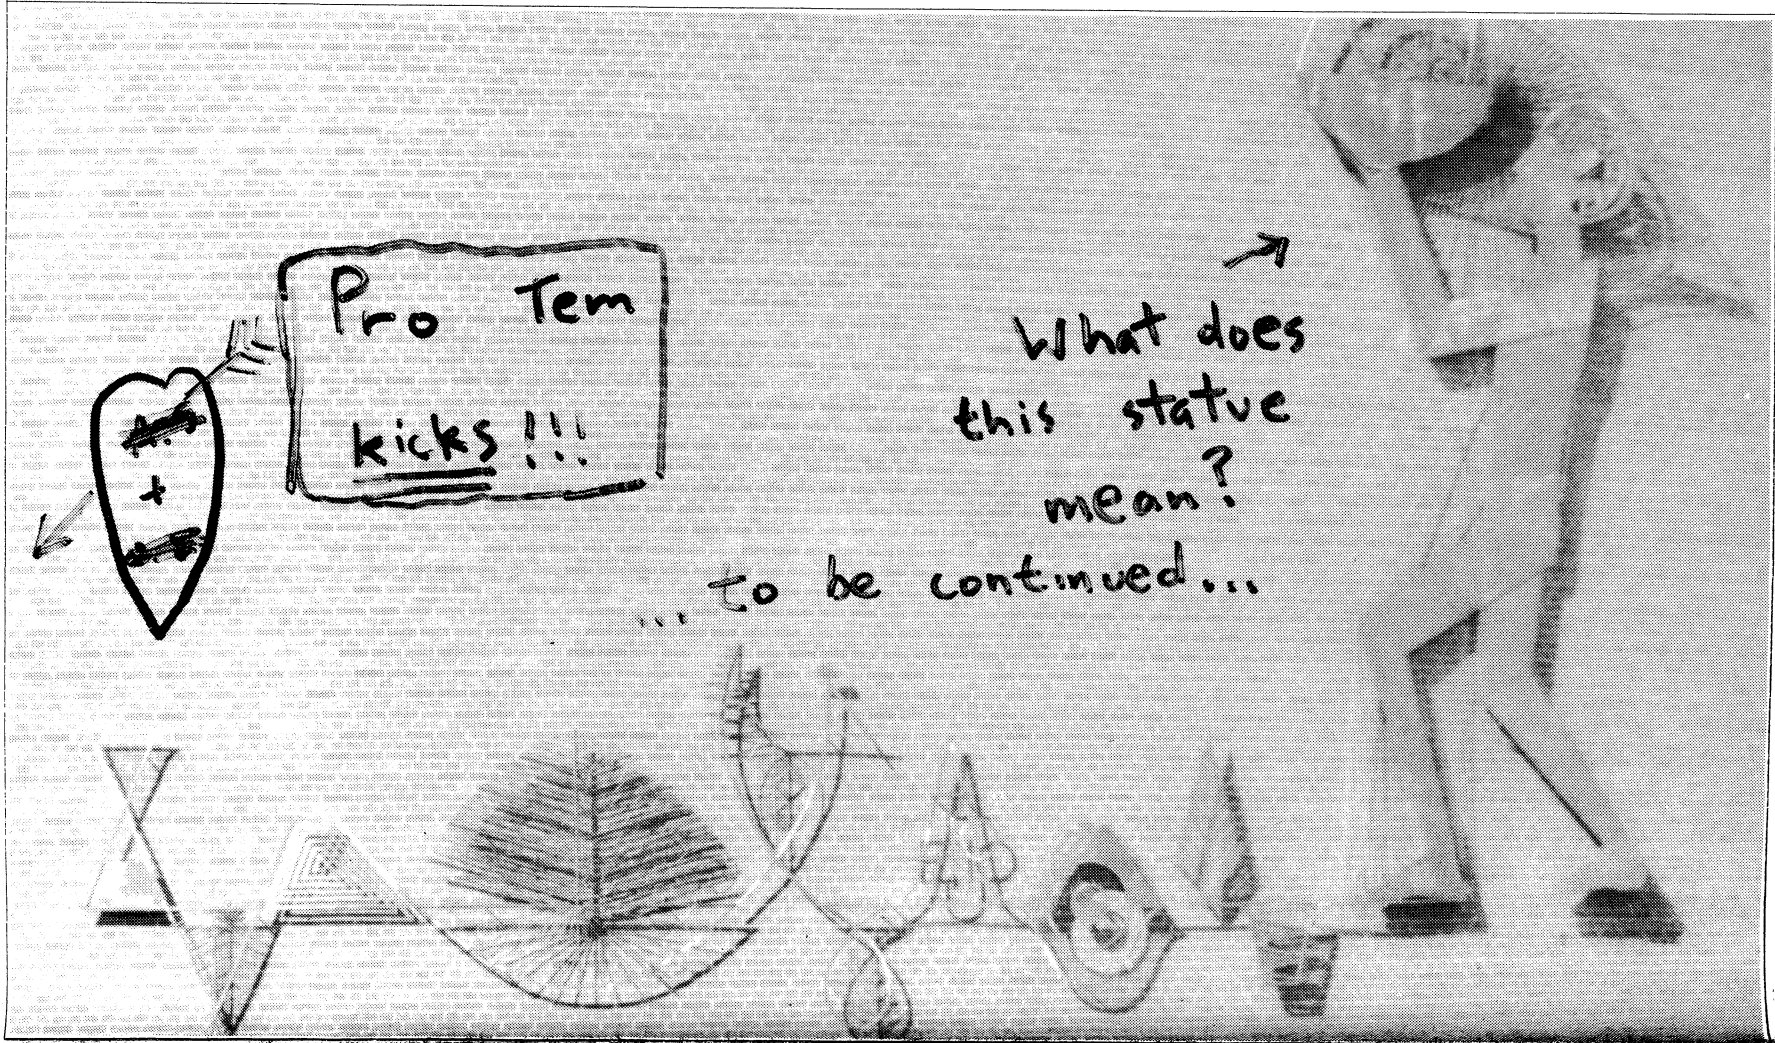 Pro Tem
kicks!!!
+
What does
this statue
mean?
...to be continued...